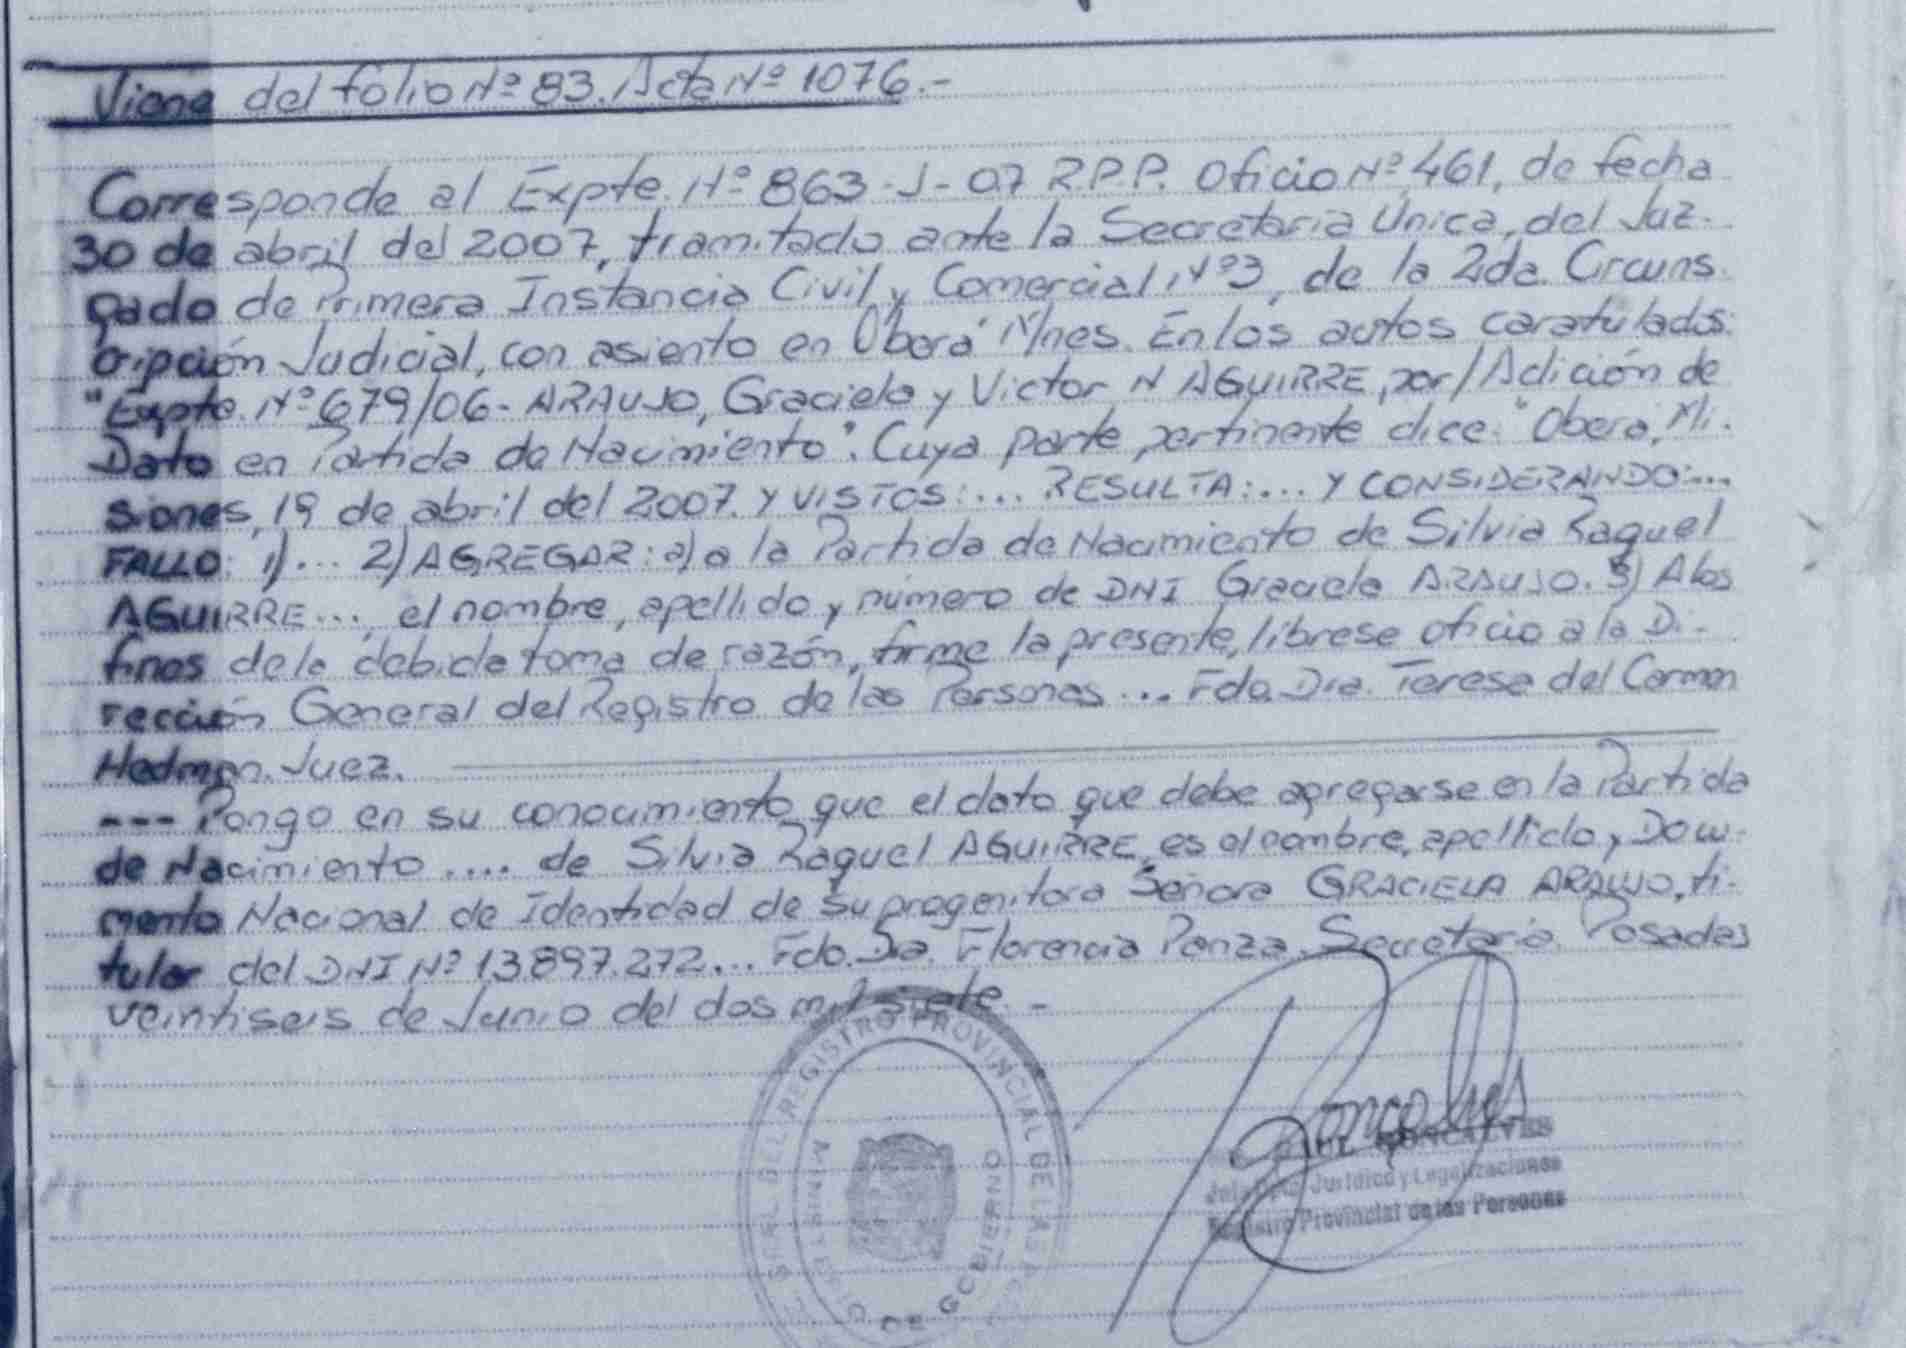 Viene del folio Nº 83. Acta Nº 1076.-
Corresponde al Expte. Nº 863-J-07 R.P.P. Oficio Nº 461, de fecha
30 de abril del 2007, tramitado ante la Secretaría Única, del Juz-
gado de Primera Instancia Civil y Comercial Nº 3, de la 2da. Circuns-
cripción Judicial, con asiento en Oberá Mnes. En los autos caratulados:
"Expte. Nº 679/06- ARAUJO, Graciela y Victor N AGUIRRE, por/Adición de
Dato en Partida de Nacimiento". Cuya parte pertinente dice: "Oberá, Mi-
siones, 19 de abril del 2007. Y VISTOS:... RESULTA:... Y CONSIDERANDO:...
FALLO: 1)... 2) AGREGAR: a) a la Partida de Nacimiento de Silvia Raquel
AGUIRRE..., el nombre, apellido y número de DNI Graciela ARAUJO. 3) A los
fines de la debida toma de razón, firme la presente, líbrese oficio a la Di-
rección General del Registro de las Personas... Fdo. Dra. Teresa del Carmen
Hedman. Juez.
--- Pongo en su conocimiento que el dato que debe agregarse en la Partida
de Nacimiento .... de Silvia Raquel AGUIRRE, es el nombre, apellido y Docu-
mento Nacional de Identidad de su progenitora Señora GRACIELA ARAUJO, ti-
tular del DNI Nº 13.897.272... Fdo. Dra. Florencia Panza. Secretaria. Posadas
veintiseis de Junio del dos mil siete.-
REGISTRO PROVINCIAL DE LAS
MINISTERIO DE GOBIERNO
GONCALVES
Jurídico y Legalizaciones
Registro Provincial de las Personas